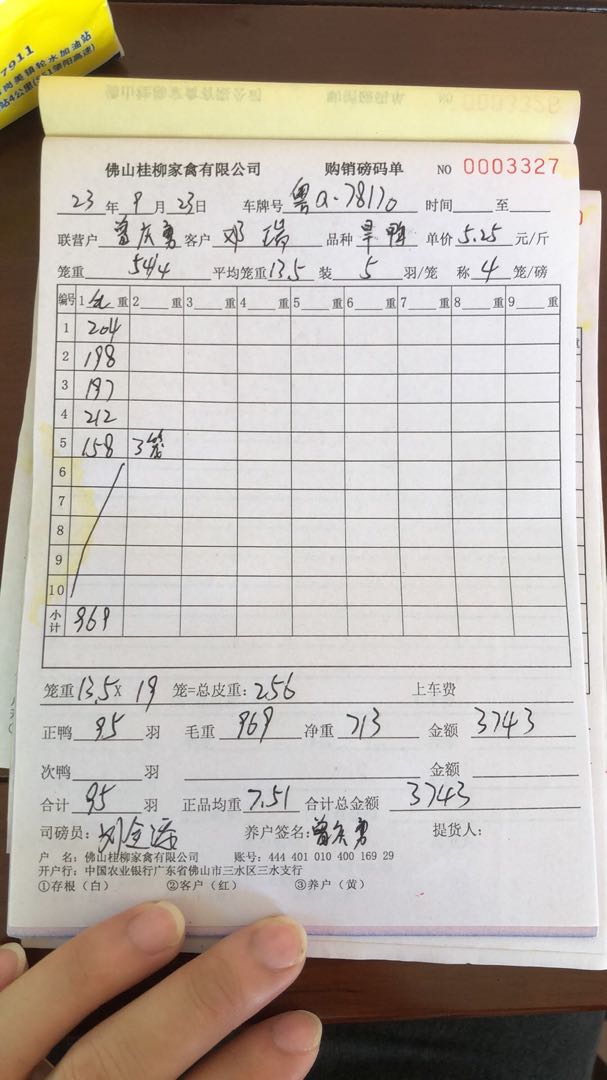 7911
岗美镇轮水加油站
站4公里(S51肇阳高速)
0003328
佛山桂柳家禽有限公司 购销磅码单 NO 0003327
23 年 9 月 23 日 车牌号 粤Q·78170 时间 至
联营户 曾庆勇 客户 邓瑞 品种 旱鸭 单价 5.25 元/斤
笼重 54/4 平均笼重 13.5 装 5 羽/笼 称 4 笼/磅
编号 1 毛 重 2 重 3 重 4 重 5 重 6 重 7 重 8 重 9 重
1 204
2 198
3 197
4 212
5 158 3笼
6
7
8
9
10
小计 969
笼重 13.5 X 19 笼=总皮重: 256 上车费
正鸭 95 羽 毛重 969 净重 713 金额 3743
次鸭 羽 金额
合计 95 羽 正品均重 7.51 合计总金额 3743
司磅员: 养户签名: 曾庆勇 提货人:
户 名: 佛山桂柳家禽有限公司 账号: 444 401 010 400 169 29
开户行: 中国农业银行广东省佛山市三水区三水支行
①存根（白） ②客户（红） ③养户（黄）